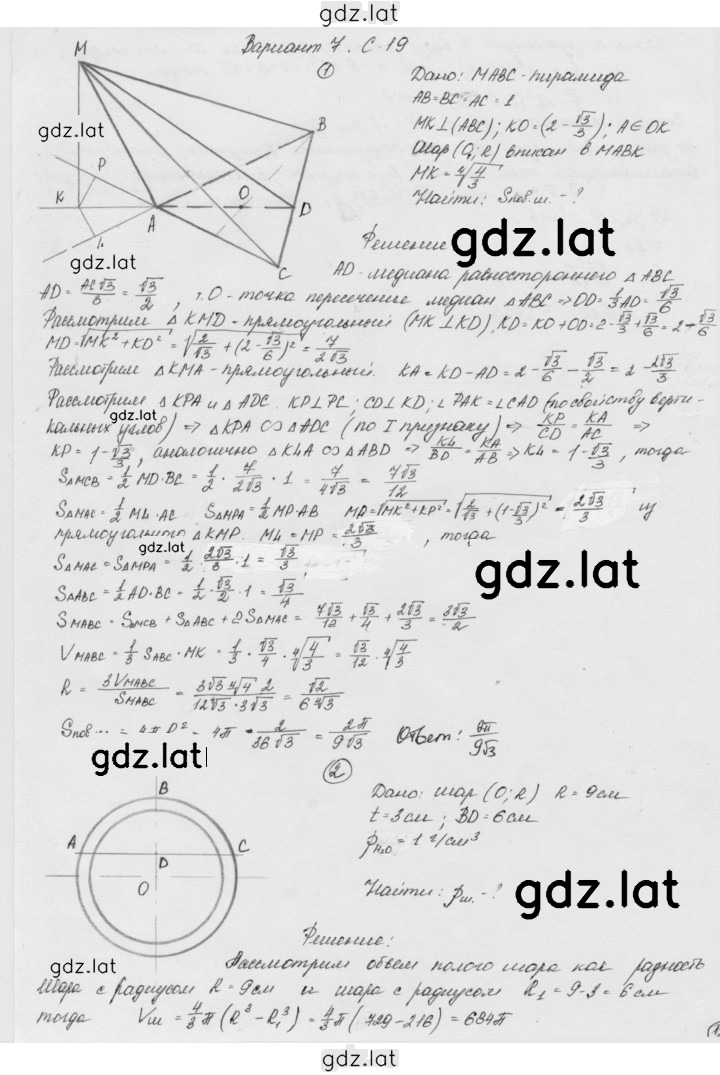 gdz.lat
Вариант 7. С-19
①
Дано: МАВС - пирамида
АВ=ВС=АС=1
МК⊥(АВС); КО=(2-√3/3); А∈ОК
Шар (О, R) вписан в МАВК
МК=∜(4/3)
Найти: Sпов.ш. - ?
M
B
gdz.lat
P
K
A
O
D
L
C
Решение
gdz.lat
AD - медиана равностороннего △ АВС
AD = АС√3/3 = √3/2, т.О - точка пересечение медиан △ АВС ⇒ OD=1/3AD=√3/6
Рассмотрим △ KMD - прямоугольный (МК ⊥ KD), KD=KO+OD=2-√3/3+√3/6=2+√3/6
MD=√(MK²+KD²)=√(2/√3+(2-√3/6)²)=7/(2√3)
Рассмотрим △КМА - прямоугольный. КА=KD-AD=2-√3/6-√3/2=2-2√3/3
Рассмотрим △ КРА и △ ADC. КР⊥РС; CD⊥KD; ∠PAK=∠CAD (по свойству верти-
gdz.lat
кальных углов) ⇒ △КРА ∽ △ADC (по I признаку) ⇒ KP/CD = KA/AC ⇒
КР = 1-√3/3, аналогично △К4А ∽ △ABD ⇒ K4/BD=KA/AB ⇒ К4=1-√3/3, тогда
S△MCB=1/2 MD·BC=1/2·7/(2√3)·1=7/(4√3)=7√3/12
S△MAC=1/2 M4·AC S△MPA=1/2MP·AB MP=√(MK²+KP²)=√(2/√3+(1-√3/3)²)=2√3/3 из
прямоугольного △КМР. М4=МР=2√3/3, тогда
gdz.lat
S△MAC=S△MPA=1/2·2√3/3·1=√3/3
gdz.lat
S△ABC=1/2AD·BC=1/2·√3/2·1=√3/4
SMABC=S△MCB+S△ABC+2S△MAC=7√3/12+√3/4+2√3/3=3√3/2
VMABC=1/3 SABC·MK=1/3·√3/4·∜(4/3)=√3/12·∜(4/3)
R=3VMABC/SMABC=3√3∜4·2/(12√3·3√3)=√2/(6∜3)
Sпов...=4πR²=4π·2/(36√3)=2π/(9√3) Ответ: 2π/(9√3)
gdz.lat
②
Дано: шар (О; R) R=9см
t=3см; BD=6см
ρH₂O=1 г/см³
Найти: ρш. - ?
B
A
D
C
O
gdz.lat
Решение:
Рассмотрим объем полого шара как разность
gdz.lat
Шара с радиусом R=9см и шара с радиусом R₁=9-3=6см
тогда Vш=4/3π(R³-R₁³)=4/3π(729-216)=684π
gdz.lat